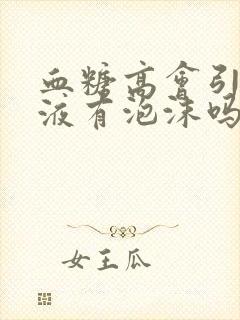 血糖高会引
液有泡沫吗
女王瓜